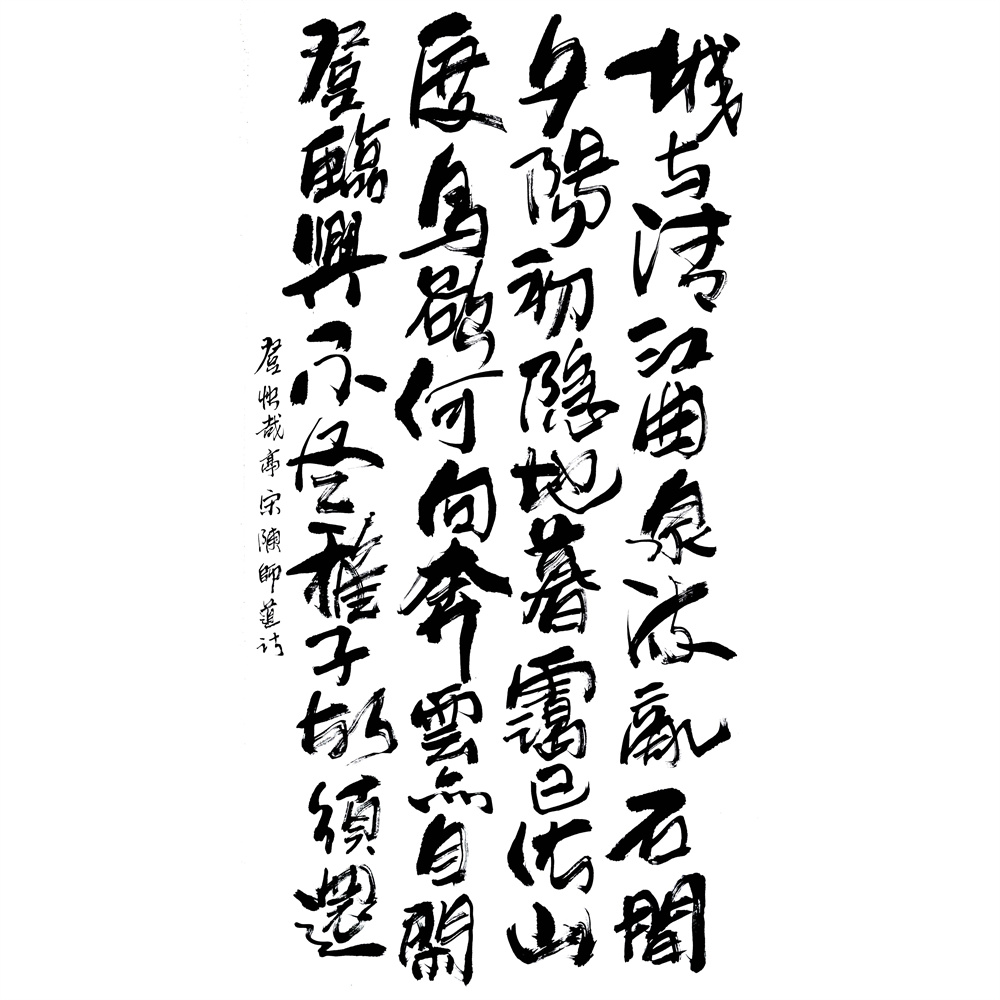 城与清江曲泉流亂石間
夕陽初隱地暮靄已依山
度鳥欲何向奔雲亦自閑
登臨興不盡稚子故須還
登快哉亭宋陳師道詩